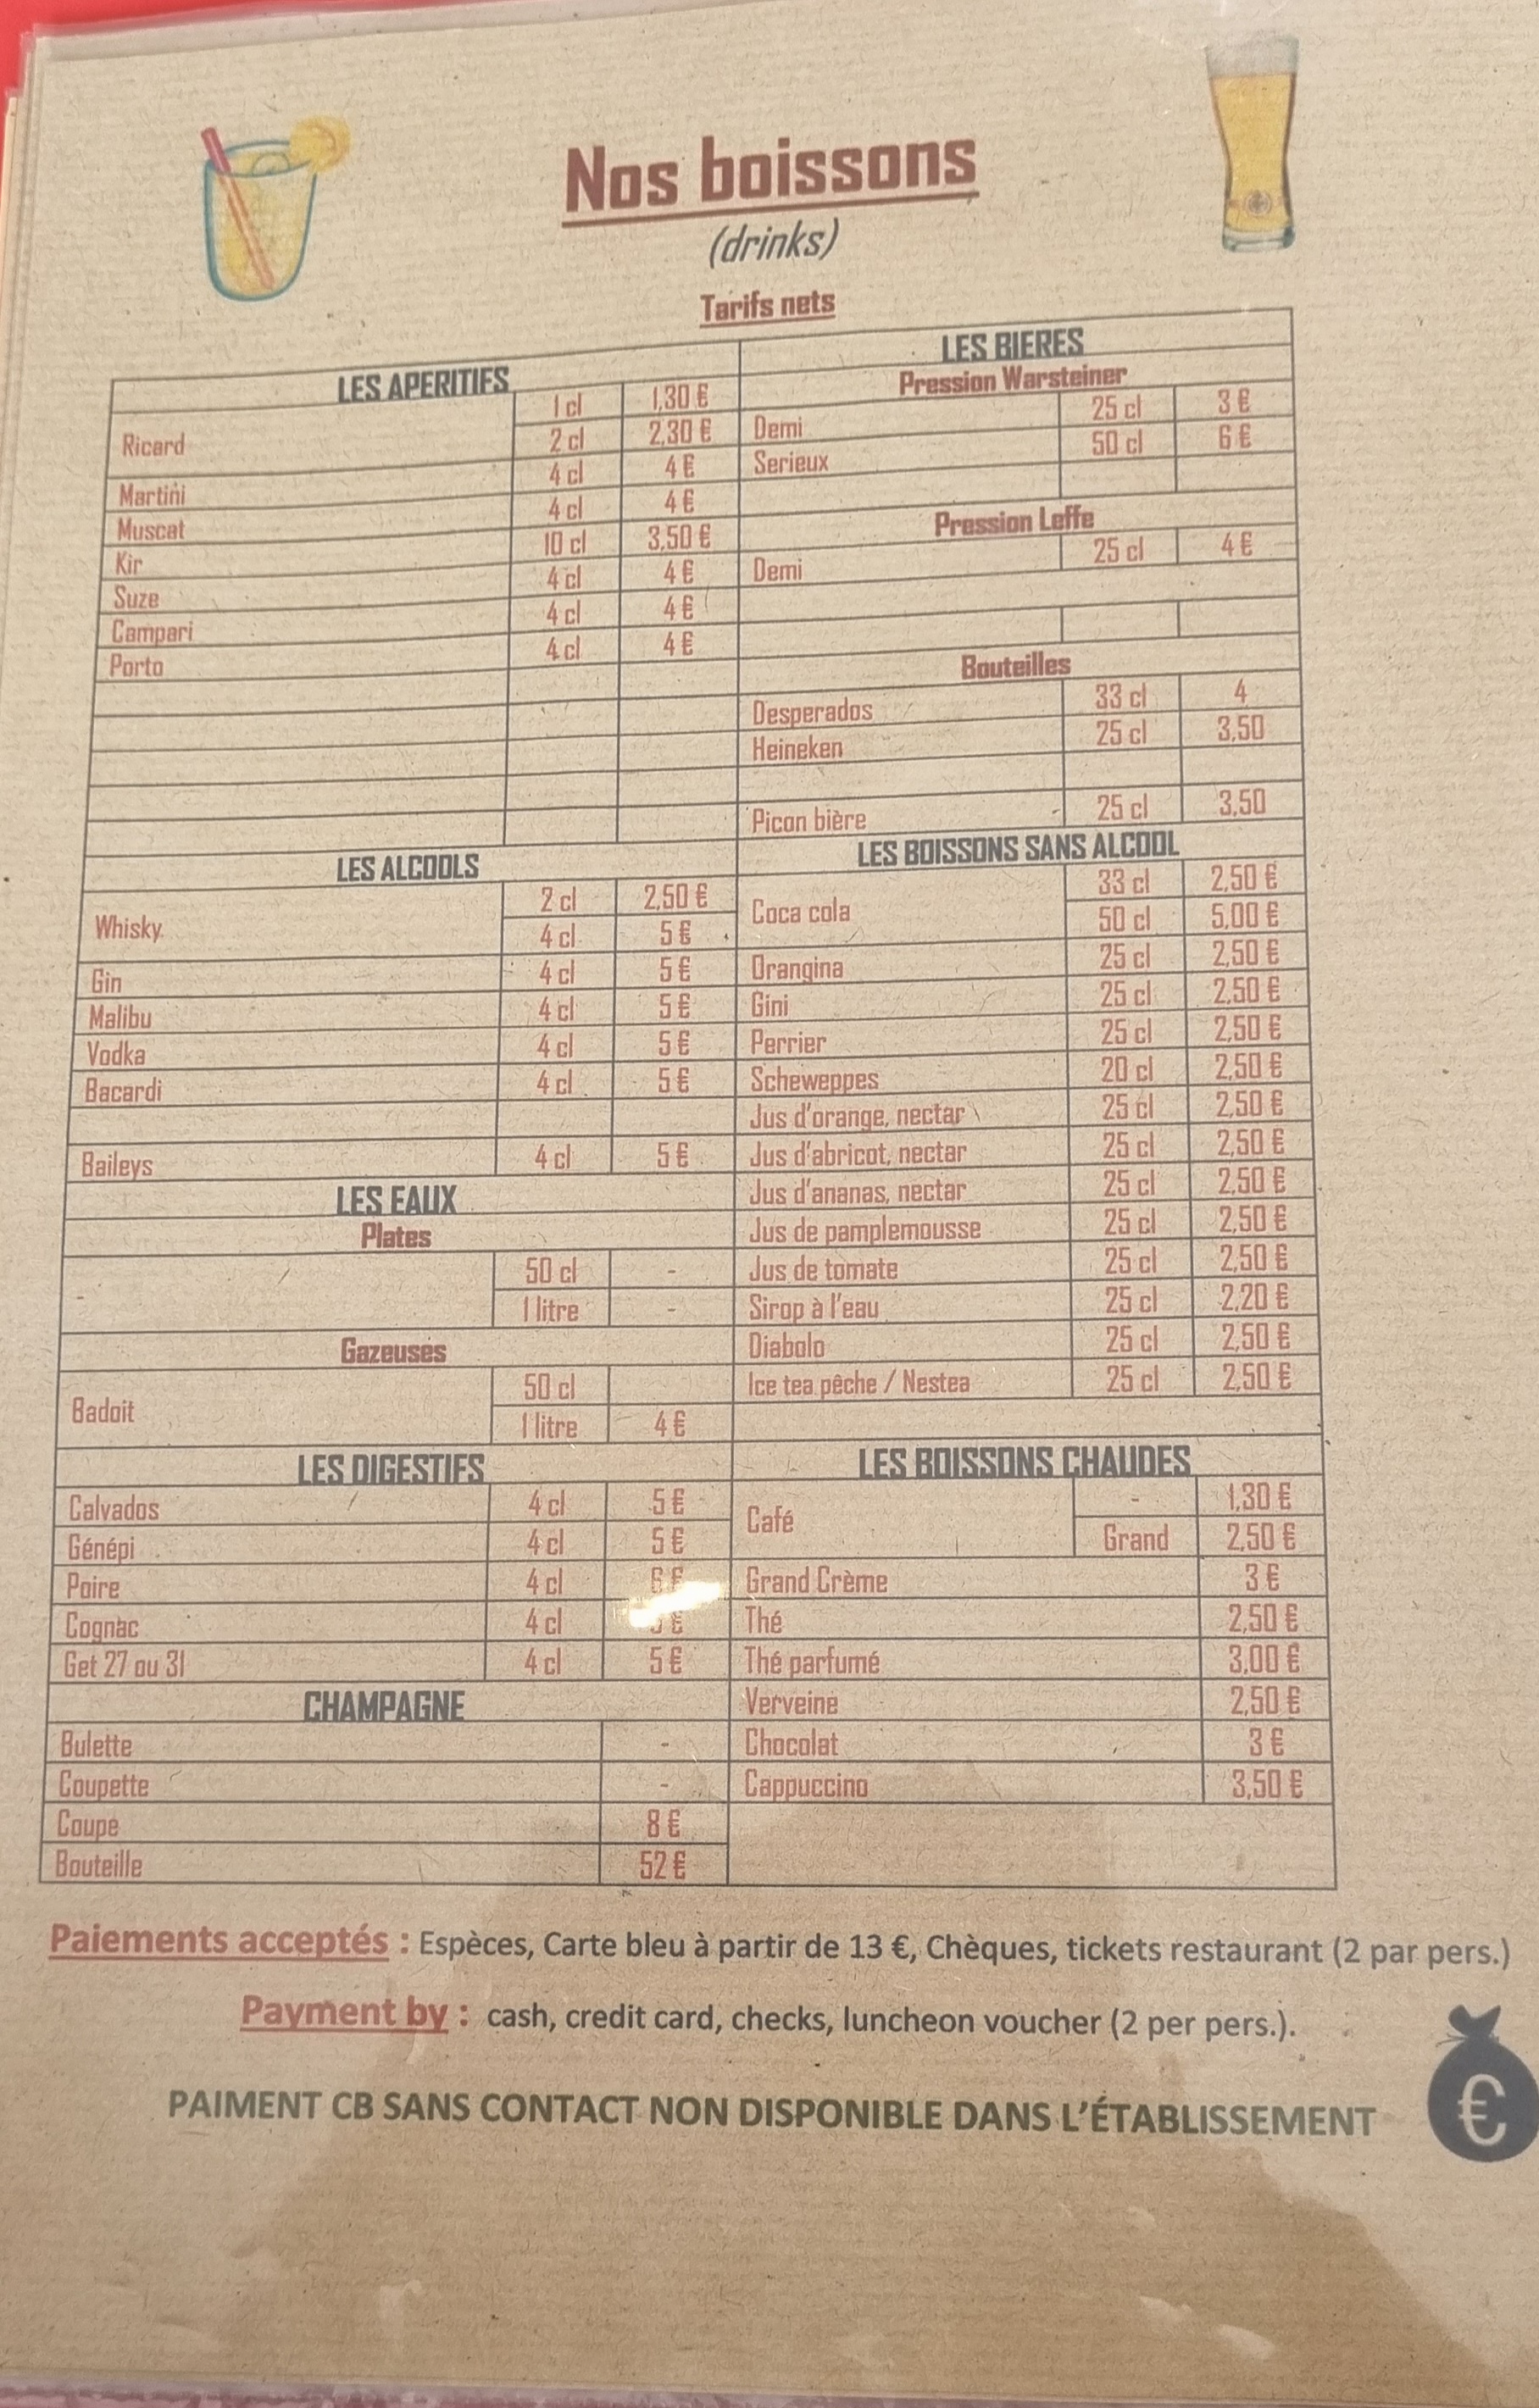 Nos boissons
(drinks)
Tarifs nets
LES APERITIFS
Ricard 1 cl 1,30 €
2 cl 2,30 €
Martini 4 cl 4 €
Muscat 4 cl 4 €
Kir 10 cl 3,50 €
Suze 4 cl 4 €
Campari 4 cl 4 €
Porto 4 cl 4 €
LES ALCOOLS
Whisky 2 cl 2,50 €
4 cl 5 €
Gin 4 cl 5 €
Malibu 4 cl 5 €
Vodka 4 cl 5 €
Bacardi 4 cl 5 €
Baileys 4 cl 5 €
LES EAUX
Plates
50 cl -
1 litre -
Gazeuses
Badoit 50 cl
1 litre 4 €
LES DIGESTIFS
Calvados 4 cl 5 €
Génépi 4 cl 5 €
Poire 4 cl 6 €
Cognac 4 cl €
Get 27 ou 31 4 cl 5 €
CHAMPAGNE
Bulette -
Coupette -
Coupe 8 €
Bouteille 52 €
LES BIERES
Pression Warsteiner
Demi 25 cl 3 €
Serieux 50 cl 6 €
Pression Leffe
Demi 25 cl 4 €
Bouteilles
Desperados 33 cl 4
Heineken 25 cl 3,50
Picon bière 25 cl 3,50
LES BOISSONS SANS ALCOOL
Coca cola 33 cl 2,50 €
50 cl 5,00 €
Orangina 25 cl 2,50 €
Gini 25 cl 2,50 €
Perrier 25 cl 2,50 €
Scheweppes 20 cl 2,50 €
Jus d'orange, nectar 25 cl 2,50 €
Jus d'abricot, nectar 25 cl 2,50 €
Jus d'ananas, nectar 25 cl 2,50 €
Jus de pamplemousse 25 cl 2,50 €
Jus de tomate 25 cl 2,50 €
Sirop à l'eau 25 cl 2,20 €
Diabolo 25 cl 2,50 €
Ice tea pêche / Nestea 25 cl 2,50 €
LES BOISSONS CHAUDES
Café - 1,30 €
Grand 2,50 €
Grand Crème 3 €
Thé 2,50 €
Thé parfumé 3,00 €
Verveine 2,50 €
Chocolat 3 €
Cappuccino 3,50 €
Paiements acceptés : Espèces, Carte bleu à partir de 13 €, Chèques, tickets restaurant (2 par pers.)
Payment by : cash, credit card, checks, luncheon voucher (2 per pers.).
PAIMENT CB SANS CONTACT NON DISPONIBLE DANS L'ÉTABLISSEMENT
€